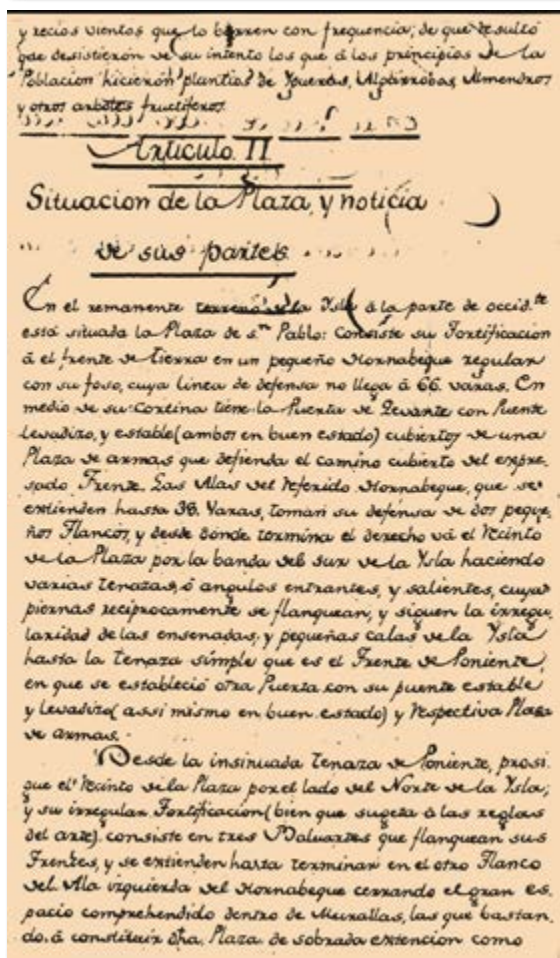 y recios vientos que lo barren con frequencia; de que resultó
que desistierón de su intento los que á los principios de la
Poblacion hicierón plantios de Huertas, Algarrobas, Almendros
y otros arboles fructiferos.
Articulo II
Situacion de la Plaza, y noticia
de sus partes
En el remanente terreno de la Ysla á la parte de occid.te
está situada la Plaza de s.n Pablo: Consiste su Fortificacion
á el frente de tierra en un pequeño Hornabeque regular
con su foso, cuya linea de defensa no llega á 66. varas. En
medio de su Cortina tiene la Puerta de Levante con Puente
Levadizo, y estable (ambos en buen estado) cubiertos de una
Plaza de armas que defienda el camino cubierto del expre-
sado Frente. Las Alas del referido Hornabeque, que se
extienden hasta 38. Varas, toman su defensa de dos peque-
ños Flancos, y desde donde termina el derecho vá el recinto
de la Plaza por la banda del sur de la Ysla haciendo
varias tenazas, ó angulos entrantes, y salientes, cuyas
piernas reciprocamente se flanquean, y siguen la irregu-
laridad de las ensenadas, y pequeñas calas de la Ysla
hasta la tenaza simple que es el Frente de Poniente,
en que se estableció otra Puerta con su puente estable
y levadizo (assi mismo en buen estado) y respectiva Plaza
de armas.
Desde la insinuada tenaza de Poniente, prosi-
gue el recinto de la Plaza por el lado del Norte de la Ysla;
y su irregular Fortificacion (bien que sugeta á las reglas
del arte) consiste en tres Baluartes que flanquean sus
Frentes, y se extienden hasta terminar en el otro Flanco
del Ala izquierda del Hornabeque cerrando el gran es-
pacio comprehendido dentro de Murallas, las que bastan-
do, á constituir dha. Plaza de sobrada extencion como